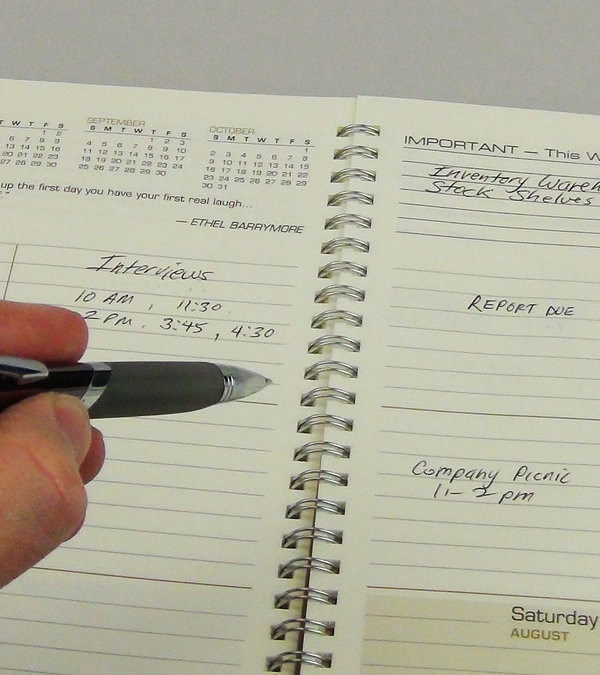 T W T F S
1 2
6 7 8 9
13 14 15 16
20 21 22 23
27 28 29 30
SEPTEMBER
S M T W T F S
1 2 3
4 5 6 7 8 9 10
11 12 13 14 15 16 17
18 19 20 21 22 23 24
25 26 27 28 29 30
OCTOBER
S M T W T F S
1
2 3 4 5 6 7 8
9 10 11 12 13 14 15
16 17 18 19 20 21 22
23 24 25 26 27 28 29
30 31
up the first day you have your first real laugh...
— ETHEL BARRYMORE
Interviews
10 AM, 11:30
2 PM, 3:45, 4:30
IMPORTANT — This W
Inventory Wareh
Stock Shelves
REPORT DUE
Company Picnic
11-2 pm
Saturday
AUGUST